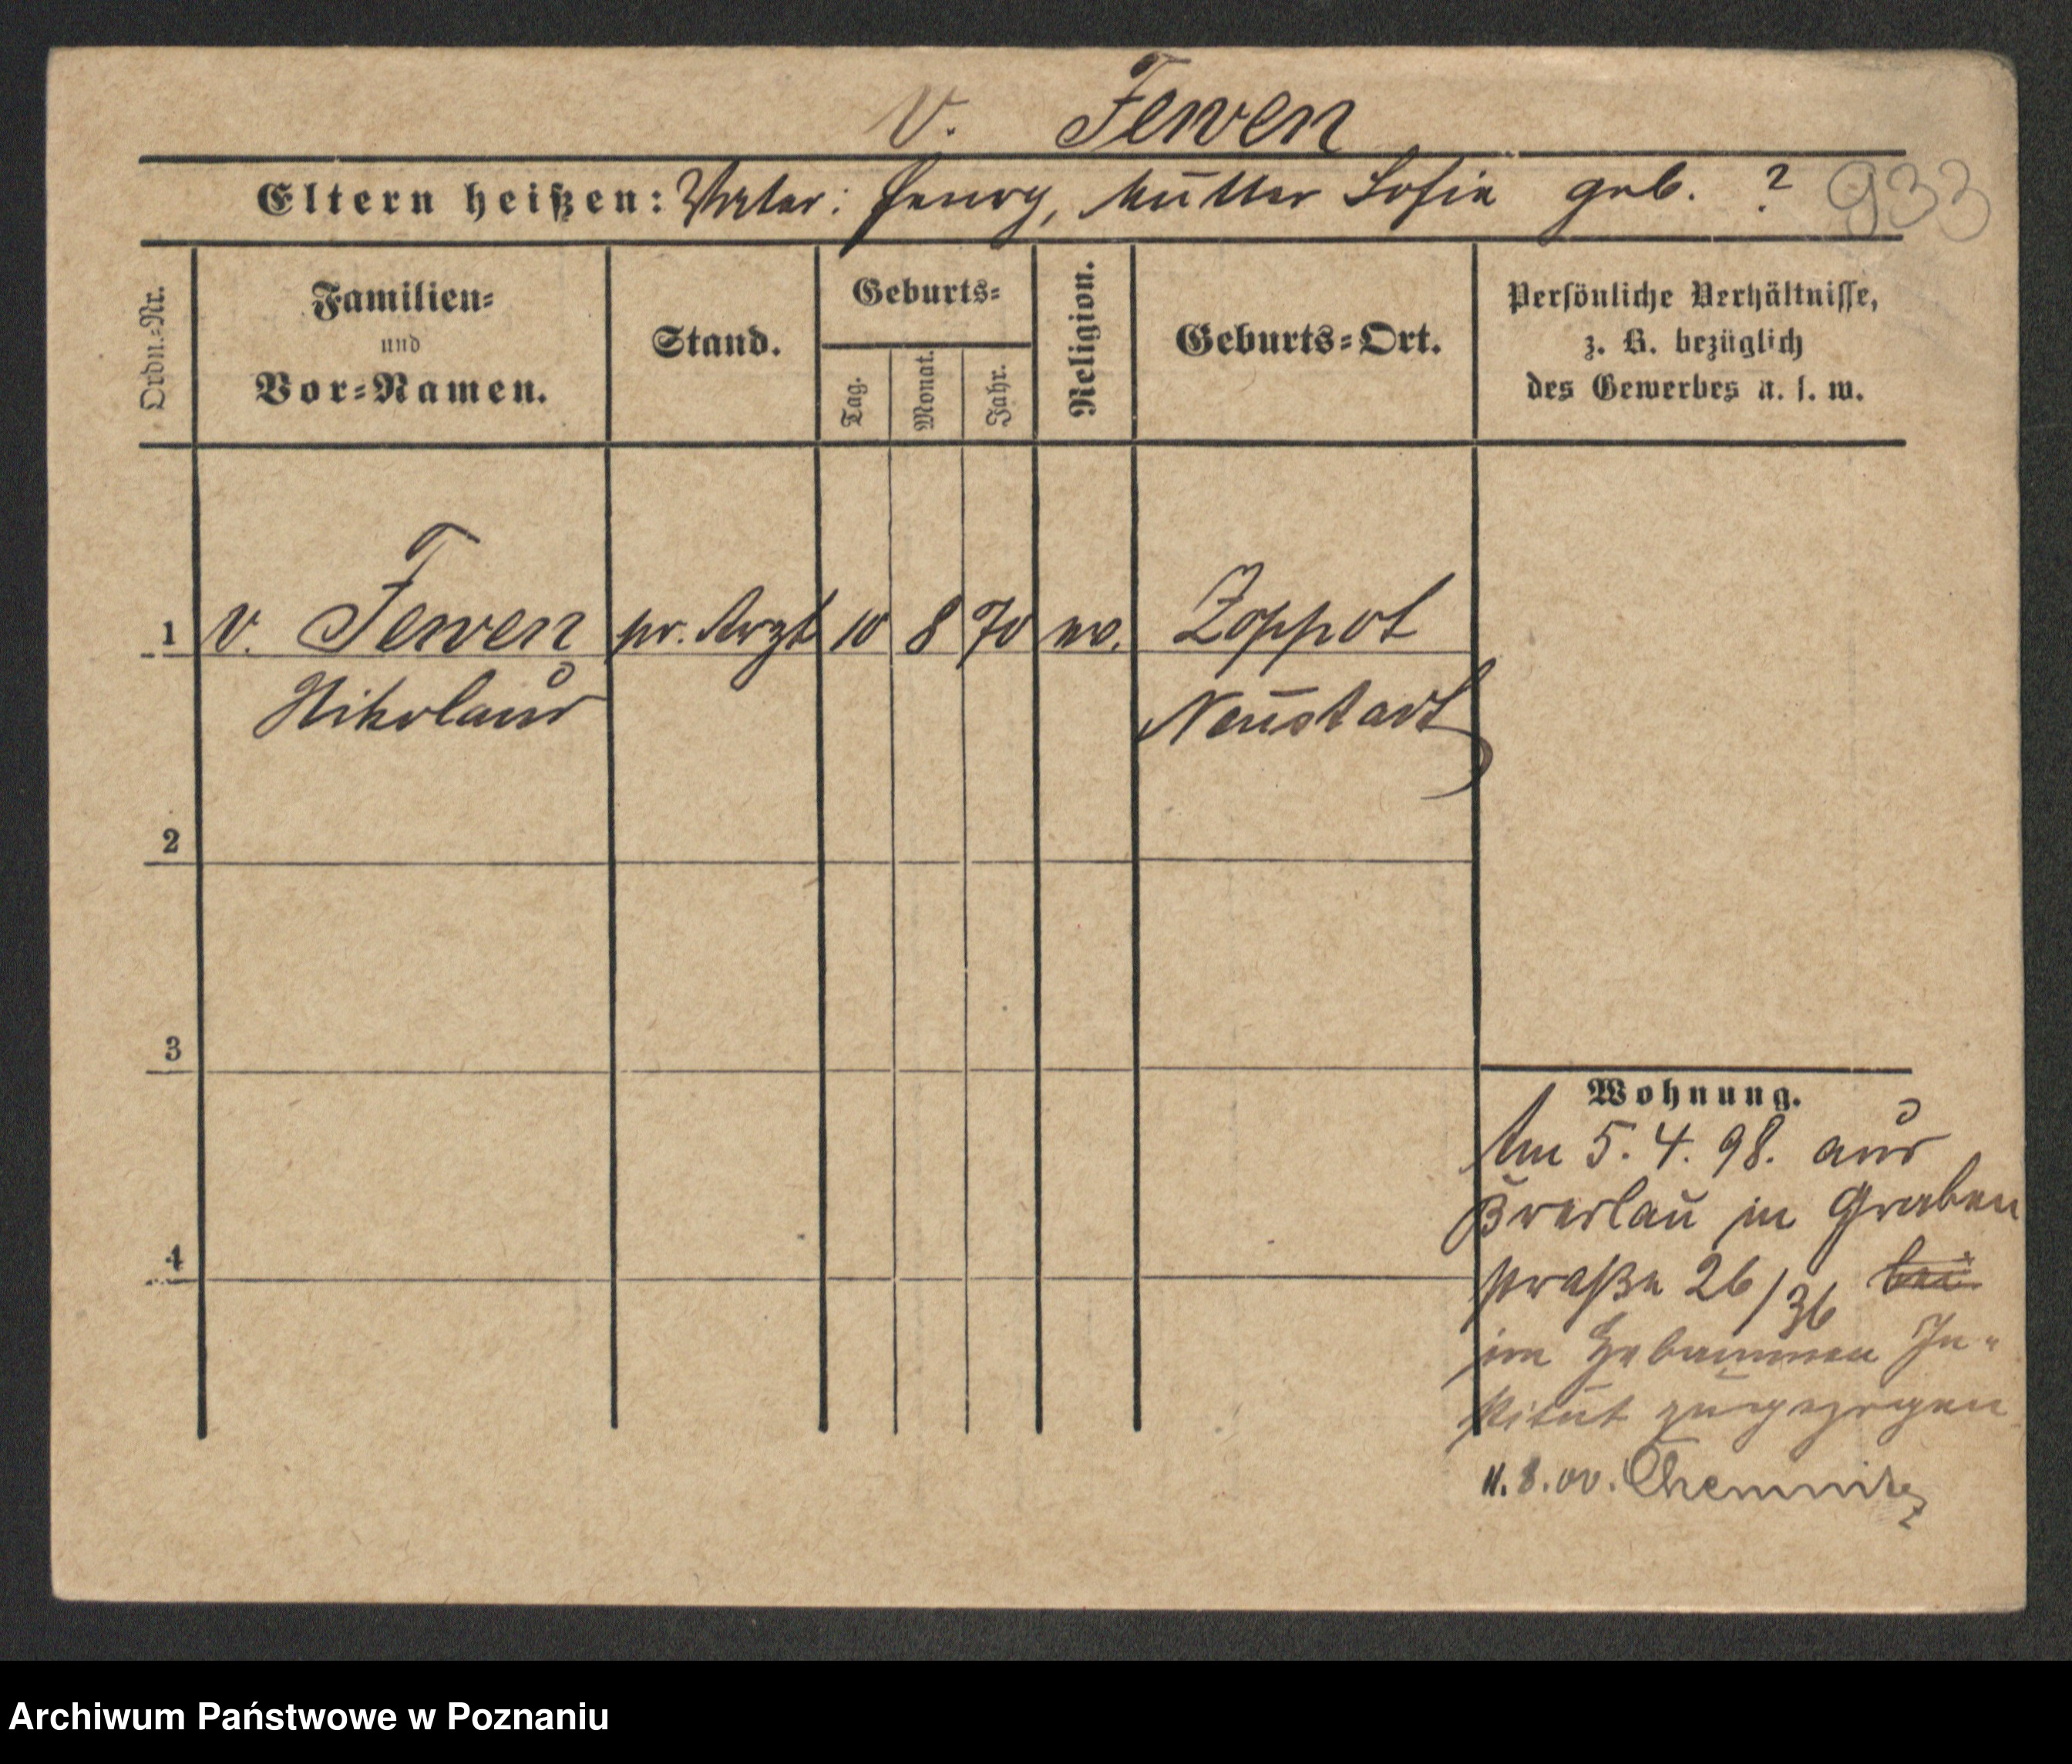 v. Fewen
Eltern heißen: Vater: Georg, Mutter Sofie geb. ?
933
Ordn.-Nr.
Familien-
und
Vor-Namen.
Stand.
Geburts-
Tag.
Monat.
Jahr.
Religion.
Geburts-Ort.
Persönliche Verhältnisse,
z. B. bezüglich
des Gewerbes u. s. w.
1 v. Fewen pr. Arzt 10 8 70 ev. Zoppot
Nikolaus Neustadt
2
3
4
Wohnung.
Am 5. 4. 98. aus
Breslau in Graben
straße 26/36 bei
im Hebammen In-
stitut zugezogen
11. 8. 00. Chemnitz
Archiwum Państwowe w Poznaniu